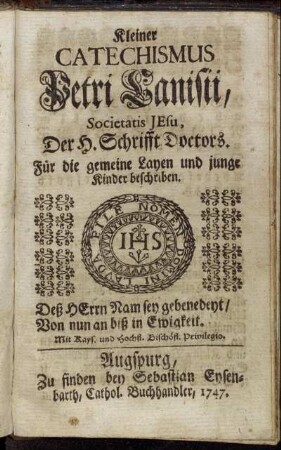 Kleiner
CATECHISMUS
Petri Canisii,
Societatis JEsu,
Der H. Schrifft Doctors.
Für die gemeine Layen und junge
Kinder beschriben.
IHS
Deß HErrn Nam sey gebenedeyt/
Von nun an biß in Ewigkeit.
Mit Kays. und Hochfl. Bischöfl. Privilegio.
Augspurg,
Zu finden bey Sebastian Eysen-
barth, Cathol. Buchhandler, 1747.